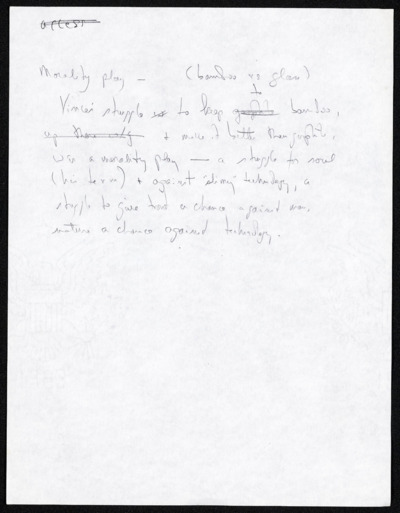 Morality play — (bamboo vs glass)
Vince's struggle to keep bamboo,
+ make it better than graphite,
was a morality play — a struggle for soul
(his term) + against 'slimy' technology, a
struggle to give trees a chance against man,
nature a chance against technology.